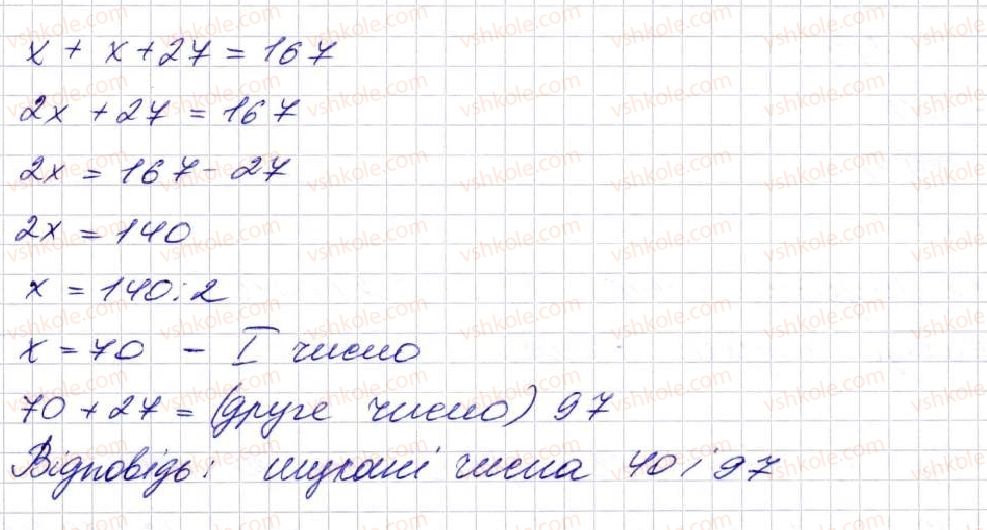 x + x + 27 = 167
2x + 27 = 167
2x = 167 - 27
2x = 140
x = 140 : 2
x = 70 - I число
70 + 27 = (друге число) 97
Відповідь: шукані числа 40 і 97